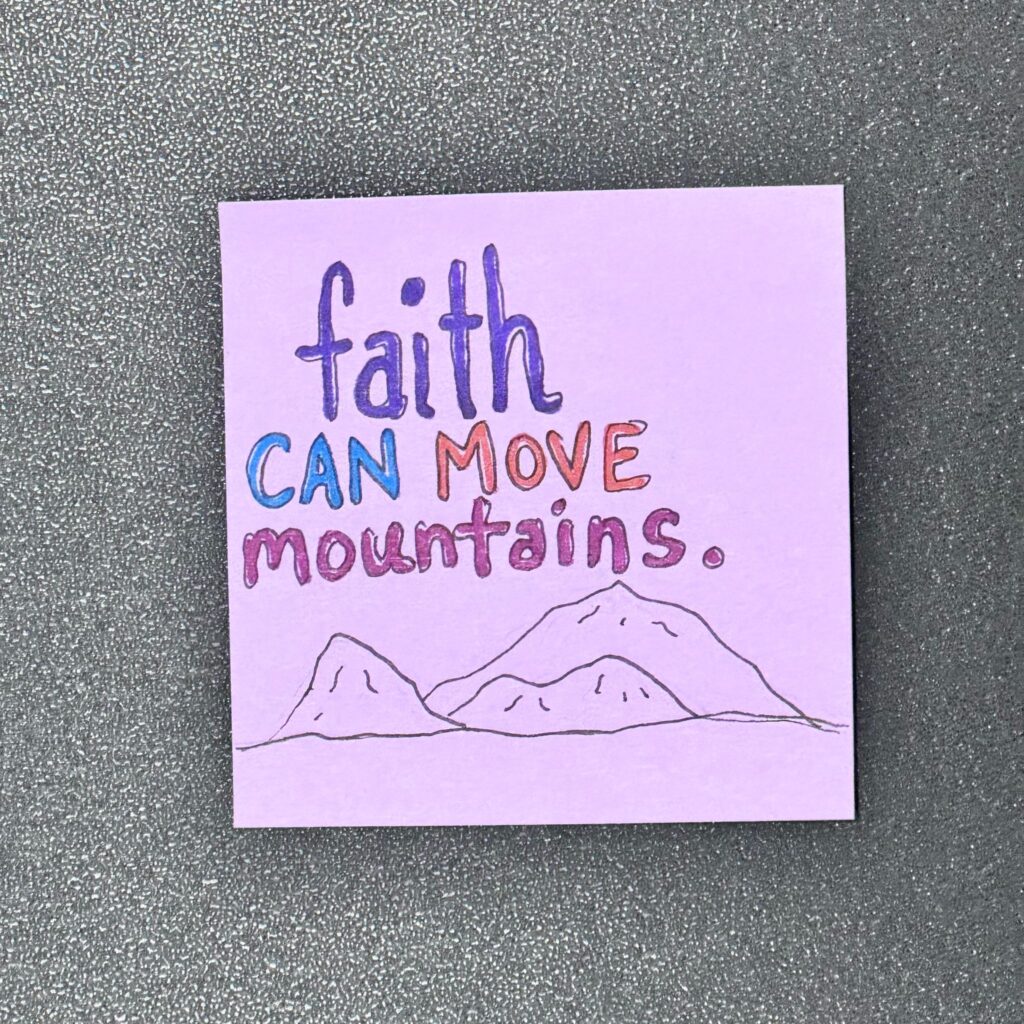 faith
CAN MOVE
mountains.